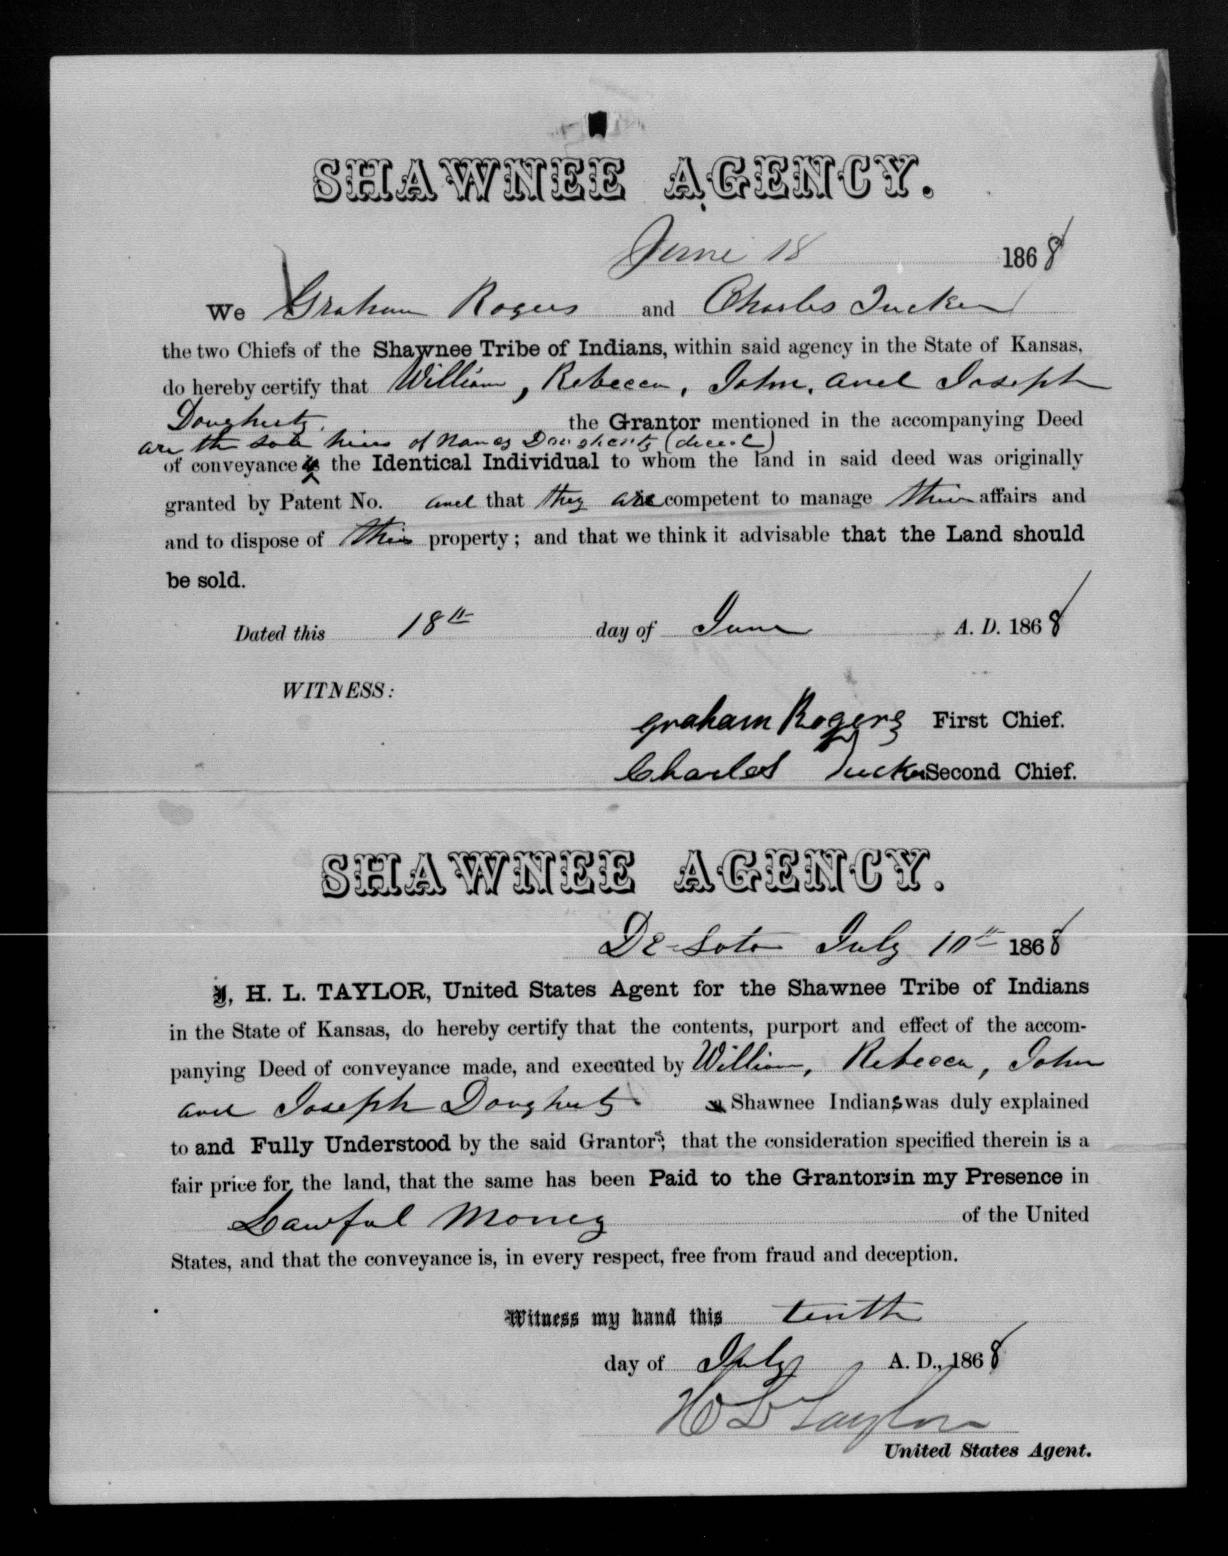 SHAWNEE AGENCY.
June 18 1868
We Graham Rogers and Charles Tucker
the two Chiefs of the Shawnee Tribe of Indians, within said agency in the State of Kansas,
do hereby certify that William, Rebecca, John, and Joseph
Dougherty. the Grantor mentioned in the accompanying Deed
are the sole heirs of Nancy Dougherty (decd)
of conveyance the Identical Individual to whom the land in said deed was originally
granted by Patent No. and that they are competent to manage their affairs and
and to dispose of their property; and that we think it advisable that the Land should
be sold.
Dated this 18th day of June A. D. 1868
WITNESS:
Graham Rogers First Chief.
Charles Tucker Second Chief.
SHAWNEE AGENCY.
De Soto July 10th 1868
I, H. L. TAYLOR, United States Agent for the Shawnee Tribe of Indians
in the State of Kansas, do hereby certify that the contents, purport and effect of the accom-
panying Deed of conveyance made, and executed by William, Rebecca, John
and Joseph Dougherty Shawnee Indians was duly explained
to and Fully Understood by the said Grantors; that the consideration specified therein is a
fair price for the land, that the same has been Paid to the Grantors in my Presence in
Lawful Money of the United
States, and that the conveyance is, in every respect, free from fraud and deception.
Witness my hand this tenth
day of July A. D., 1868
H L Taylor
United States Agent.